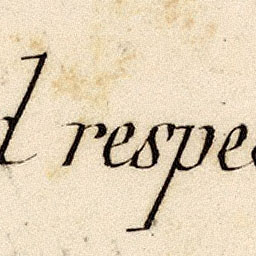 d respe